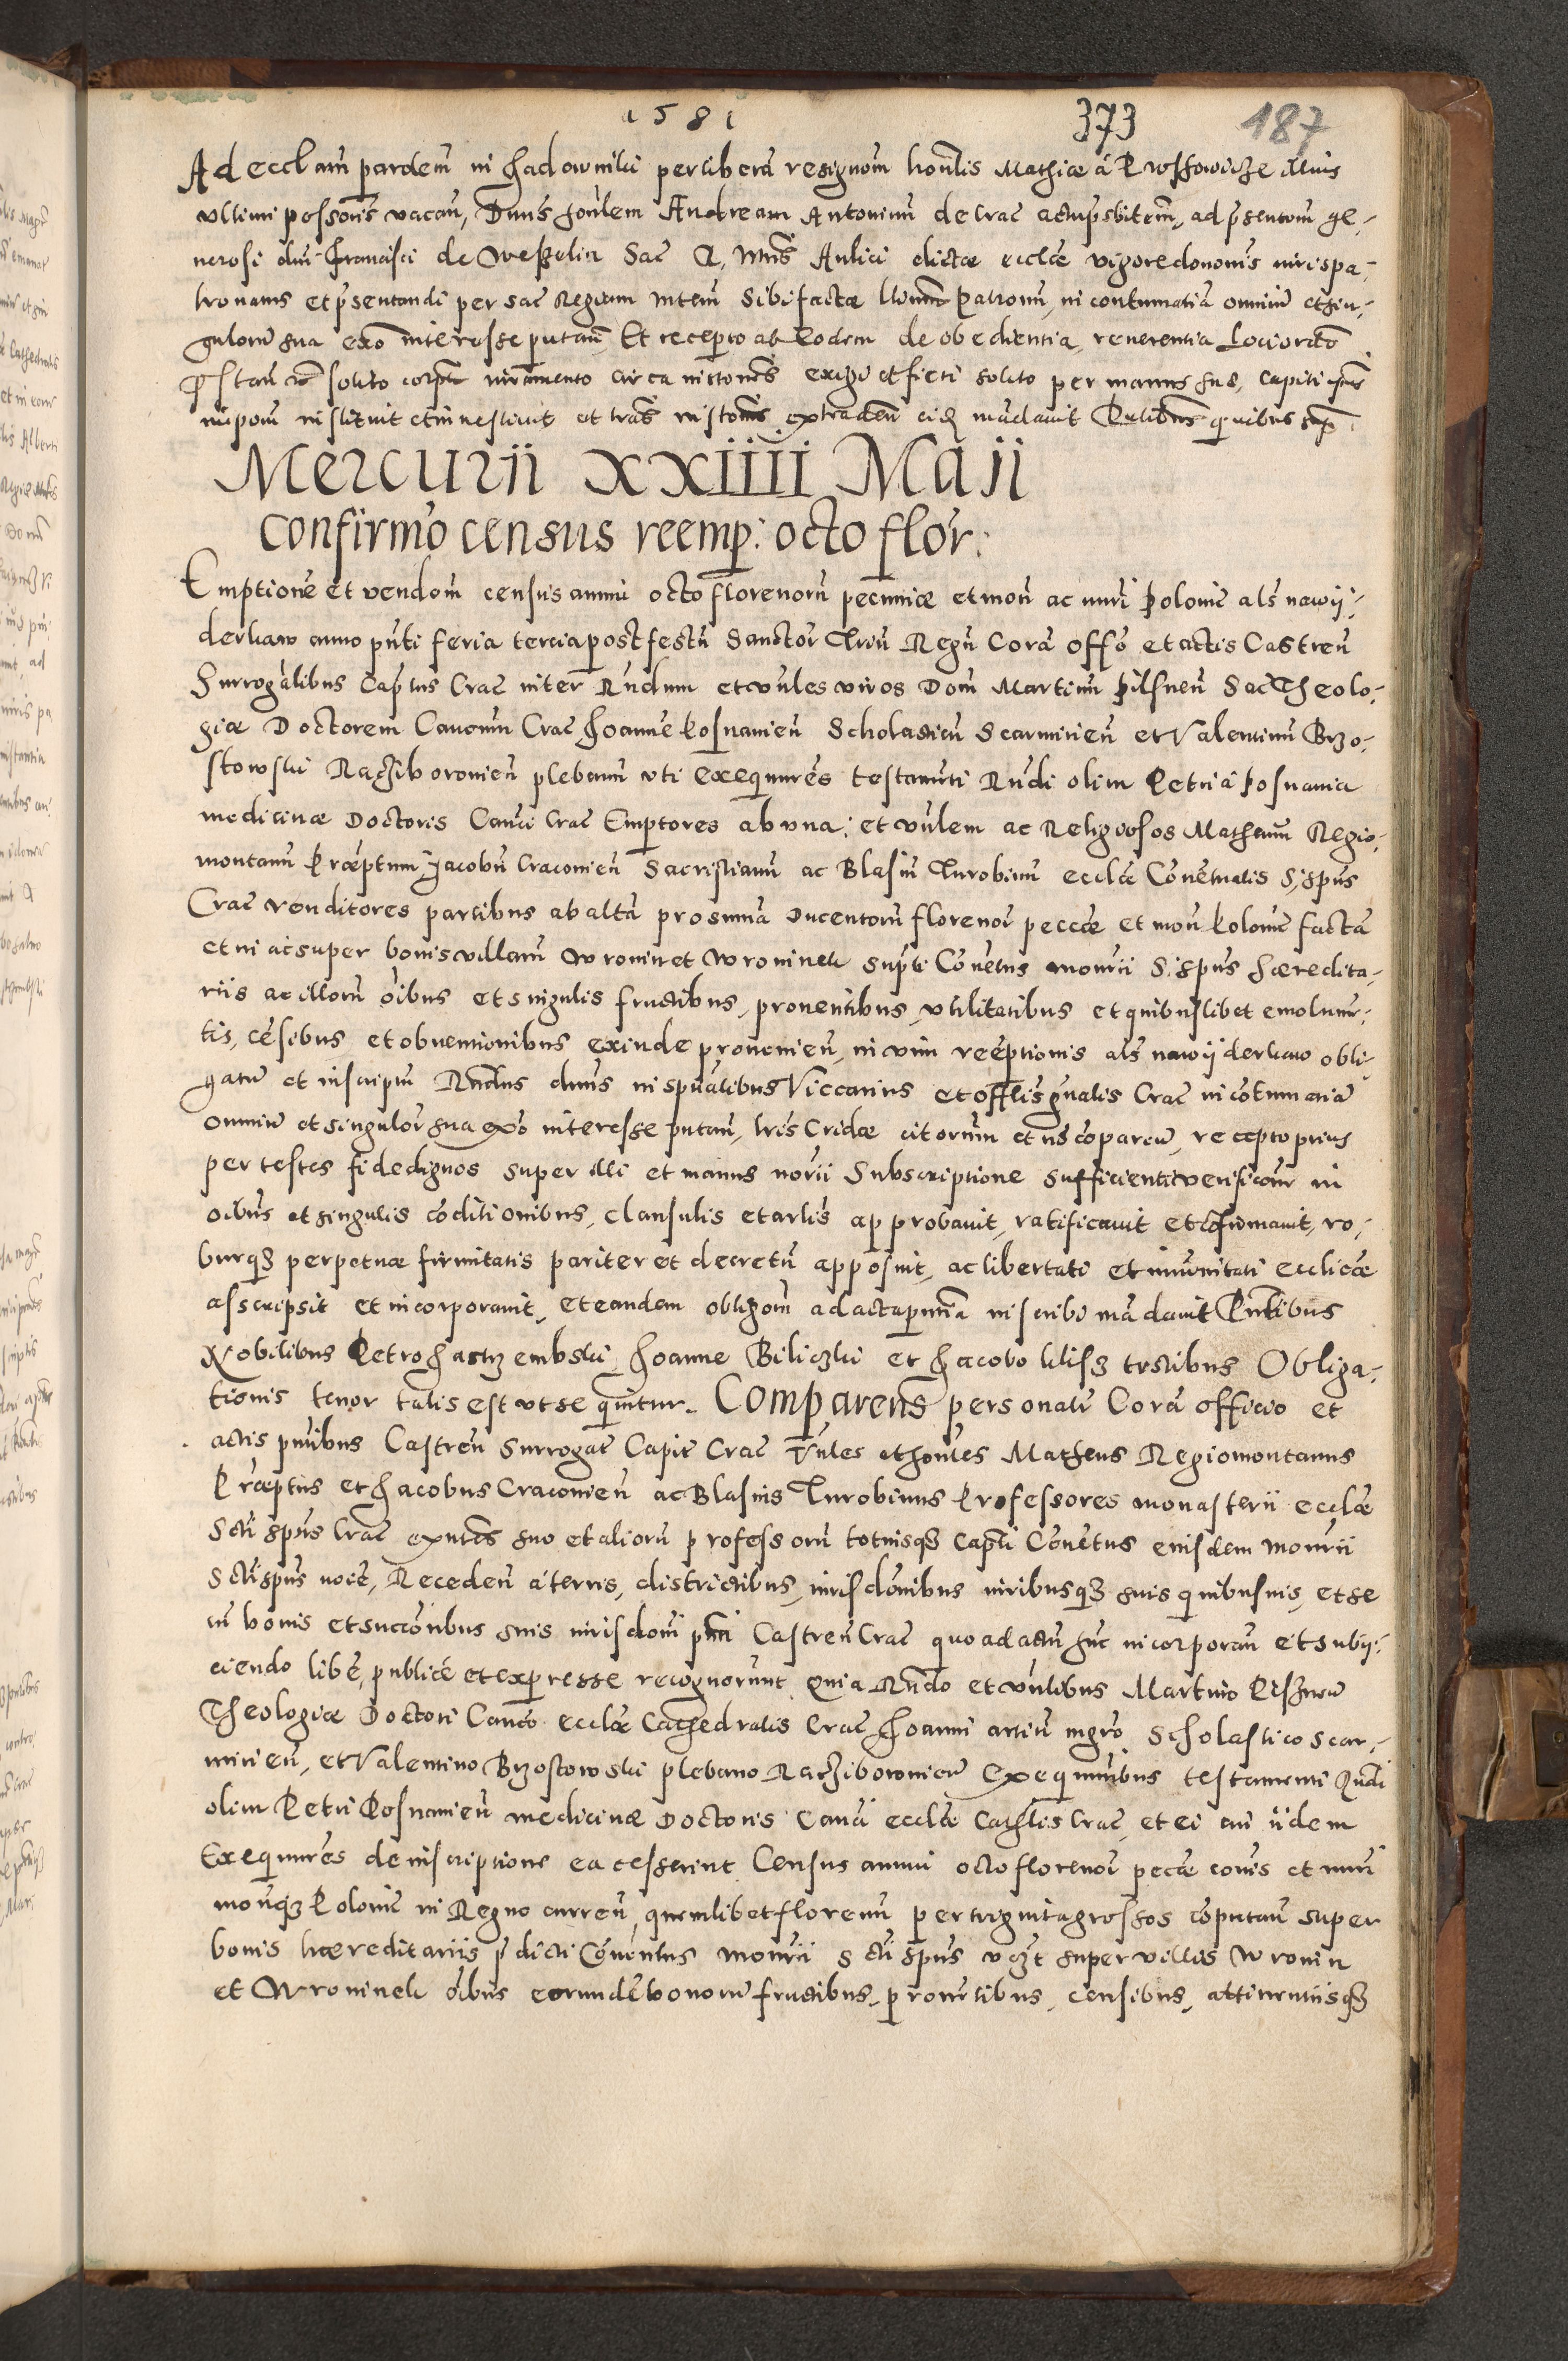 1581
373 187
Ad ecclam parolem in Hadowniki per liberā resignom honlis Mathiæ à Kwossowicze illius
ultimi possoris vacan, Dnus honlem Andream Antoninum de Crac actu psbiterm, ad psentom ge-
nerosi dni Francisci de Wesselin Sac R. Mtis Aulici dictæ ecclæ vigore dononis iurispa-
tronatus et psentandi per sac Regiam Mtem sibi factæ Patronum, in contumatiā omniū et sin-
gulorū sua exō interesse putan, Et recepto ab eodem de obedientia, reverentia Loci ordō
solito corpli iuramento circa instones exigi et fieri solito per manus suæ, capiti ipsius
impom instituit et investivit et lras instonis extraden eidē mādavit quibus supra
Mercurii XXIIII Maii
Confirmō census reemp: octo flor:
Emptionē et vendom census annui octo florenorū pecuniæ et mon ac nūri Poloniē als nawij-
derkaw anno pnti feria tercia post festū Sanctor Triū Regū Corā offō et actis Castreñ
Surrogālibus Captus Crac inter Rndum et vnles viros Dom Martinū Pilsneñ Sac Theolo-
giæ Doctorem Canonm Crac Joannē Posnanieñ Scholasticū Scarmirieñ et Valentinū Brzo-
stowski Raciboronieñ plebanū vti exequnres testamti Rndi olim Petri à Posnania
medicinæ Doctoris Canci Crac Emptores ab vna: et vnlem ac Religiosos Matheum Regio-
montanū Præptum Jacobū Cracouieñ Sacristianū ac Blasiū Turobinū ecclæ Convētualis S, Spus
Crac venditores partibus ab altā pro sumā ducentorū florenor pecæ et mon Polonie factā
et in ac super bonis villarū Wronin et Wroninek supti Covētus monrii S. Spus hæredita-
riis ac illorū oibus et singulis fructibus, proventibus, vtilitatibus et quibuslibet emolumē-
tis, cēsibus et obventionibus exinde provenieñ, in vim reēptionis als nawijderkaw obli-
gatū et inscriptū Rndus dnus in spualibus Viccarius et Offlis gnalis Crac in cōtumatiā
omniū et singulor sua exō interesse putan, lris Cridæ citorum et nō cōparēū, recepto prius
per testes fidedignos super illi et manus norii Subscriptione sufficienti verificom in
oibus et singulis cōditionibus, clausulis et arlis approbavit, ratificavit et cōfirmavit, ro-
burqз perpetuæ firmitatis pariter et decretū apposuit, ac libertati et imunitati ecclicæ
asscripsit et incorporavit, et eandem obligom ad acta pntia inscribi mādavit Pntibus
Nobilibus Petro Jastrzembski Joanne Biliczki et Jacobo testibus Obliga-
tionis tenor talis est vt sequitur. Comparens personalr Corā officio et
actis pntibus Castreñ Surrogat Capit Crac Vnles et honles Matheus Regiomontanus
Præptus et Jacobus Cracouieñ ac Blasius Turobinus Professores monasterii ecclæ
Scti Spus Crac suo et aliorū professorū totiusqз Caplti Covētus eiusdem Monrii
Scti Spus noiē, Recedeñ à terris, districtibus, iurisdonibus iuribusqз suis quibusuis, et se
cū bonis et succōribus suis iurisdomi pnti Castreñ Crac quo ad actū hūc incorporañ et subij-
ciendo libē, publicē et expresse recognorunt Quia Rndo et vnlibus Martino Pilsneñ
Theologiæ Doctori Canco ecclæ Cathedralis Crac Joanni artiū mgrō Scholastico Scar-
mirieñ, et Valentino Brzostowski plebano Raciborowieñ exequntibus testamenti Rndi
olim Petri Posnanieñ medicinæ Doctoris Canci ecclæ Cathlis Crac, et ei cui ijdem
Exequnres de inscriptione ea cesserint Census annui octo florenor pecæ covis et nūri
monqз Polonie in Regno curreñ, quemlibet florenū per triginta grossos cōputañ super
bonis hæreditariis pdicti Cōventus monrii Scti Spus vzt super villis Wronin
et Wroninek oibus eorundē bonorū fructibus, provētibus, censibus, attinentiisqз